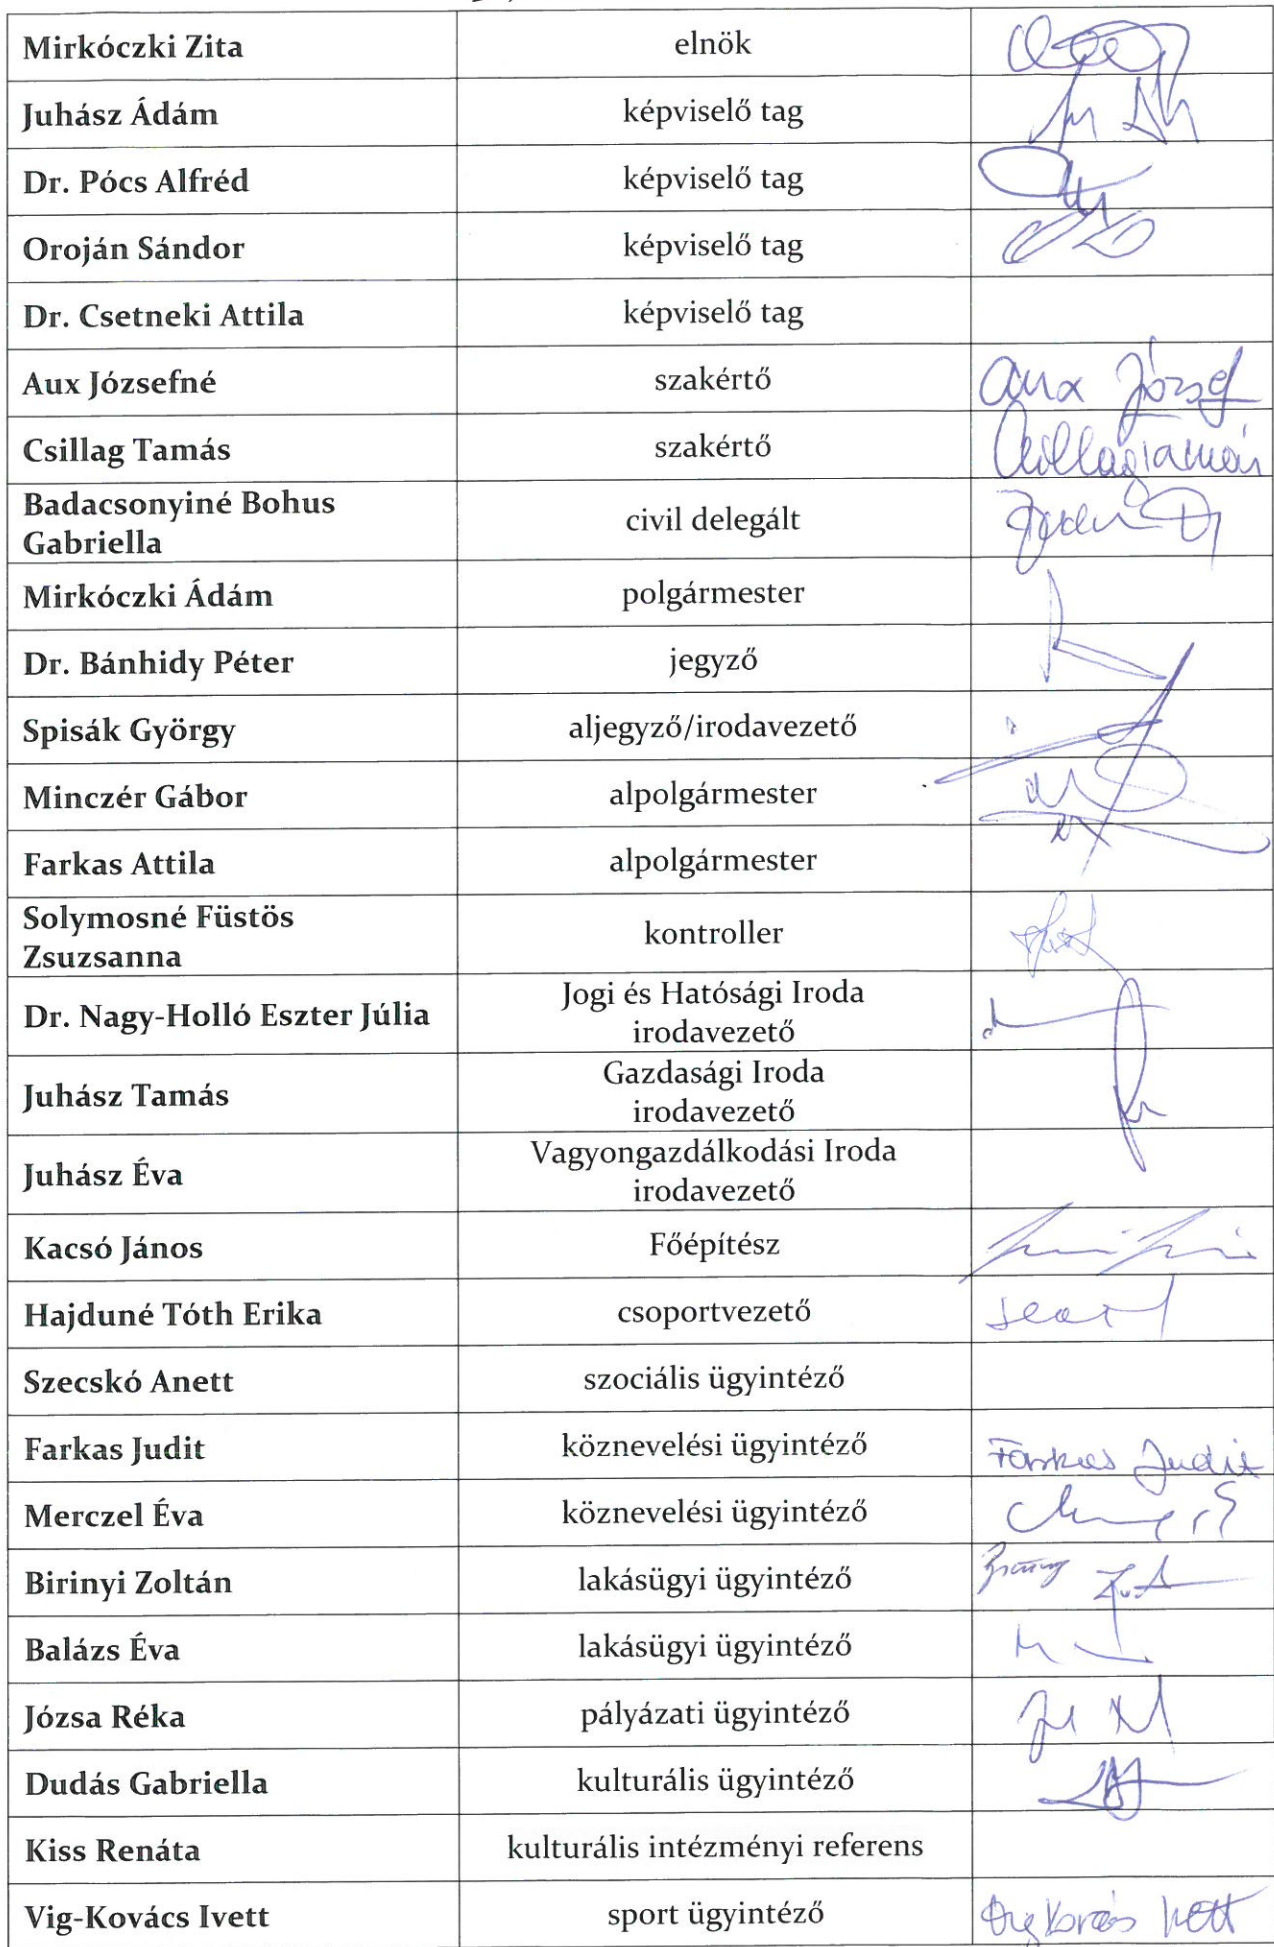 Mirkóczki Zita elnök
Juhász Ádám képviselő tag
Dr. Pócs Alfréd képviselő tag
Oroján Sándor képviselő tag
Dr. Csetneki Attila képviselő tag
Aux Józsefné szakértő Aux József
Csillag Tamás szakértő Csillag Tamás
Badacsonyiné Bohus
Gabriella
civil delegált
Mirkóczki Ádám polgármester
Dr. Bánhidy Péter jegyző
Spisák György aljegyző/irodavezető
Minczér Gábor alpolgármester
Farkas Attila alpolgármester
Solymosné Füstös
Zsuzsanna
kontroller
Dr. Nagy-Holló Eszter Júlia
Jogi és Hatósági Iroda
irodavezető
Juhász Tamás
Gazdasági Iroda
irodavezető
Juhász Éva
Vagyongazdálkodási Iroda
irodavezető
Kacsó János Főépítész
Hajduné Tóth Erika csoportvezető
Szecskó Anett szociális ügyintéző
Farkas Judit köznevelési ügyintéző Farkas Judit
Merczel Éva köznevelési ügyintéző
Birinyi Zoltán lakásügyi ügyintéző
Balázs Éva lakásügyi ügyintéző
Józsa Réka pályázati ügyintéző
Dudás Gabriella kulturális ügyintéző
Kiss Renáta kulturális intézményi referens
Vig-Kovács Ivett sport ügyintéző Vig-Kovács Ivett